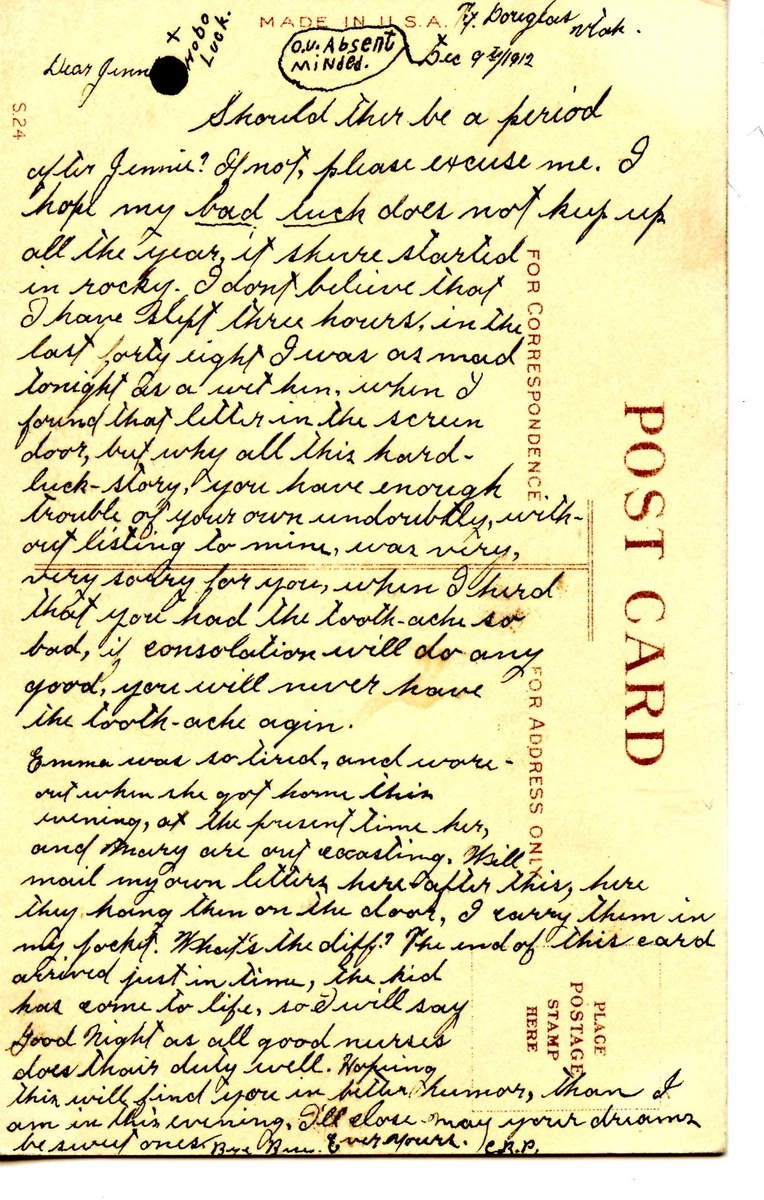 MADE IN U.S.A.
Ft. Douglas Utah.
Dec 9th/1912
O.U. Absent
Minded.
x Hobo
Luck.
Dear Jenn
S.24
Should ther be a period
after Jennie? If not, please excuse me. I
hope my bad luck does not keep up
all the year, it shure started
in rocky. I dont believe that
I have slept three hours, in the
last forty eight I was as mad
tonight as a wet hen, when I
found that letter in the screen
door, but why all this hard-
luck-story, you have enough
trouble of your own undoubtly, with-
out listing to mine, was very,
very sorry for you, when I herd
that you had the tooth-ache so
bad, if consolation will do any
good, you will never have
the tooth-ache agin.
Emma was so tired, and wore-
out when she got home this
evening, at the present time her,
and Mary are out skating. Will
mail my own letters here after this, here
they hang then on the door, I carry them in
my pocket. What's the diff? The end of this card
arrived just in time, the kid
has come to life, so I will say
Good Night as all good nurses
does thair duty well. Hoping
this will find you in better humor, than I
am in this evening. I'll close may your dreams
be sweet ones. Bye Bye. Ever yours. C.R.P.
FOR CORRESPONDENCE
POST CARD
FOR ADDRESS ONLY
PLACE
POSTAGE
STAMP
HERE